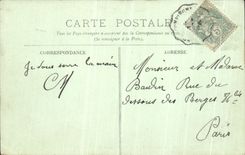 CARTE POSTALE
Tous les Pays étrangers n'acceptent pas la Correspondance au Recto
(Se renseigner à la Poste)
CORRESPONDANCE
ADRESSE
Je vous serre la main
CM
Monsieur et Madame
Baudin Rue du
dessous des Berges
Paris